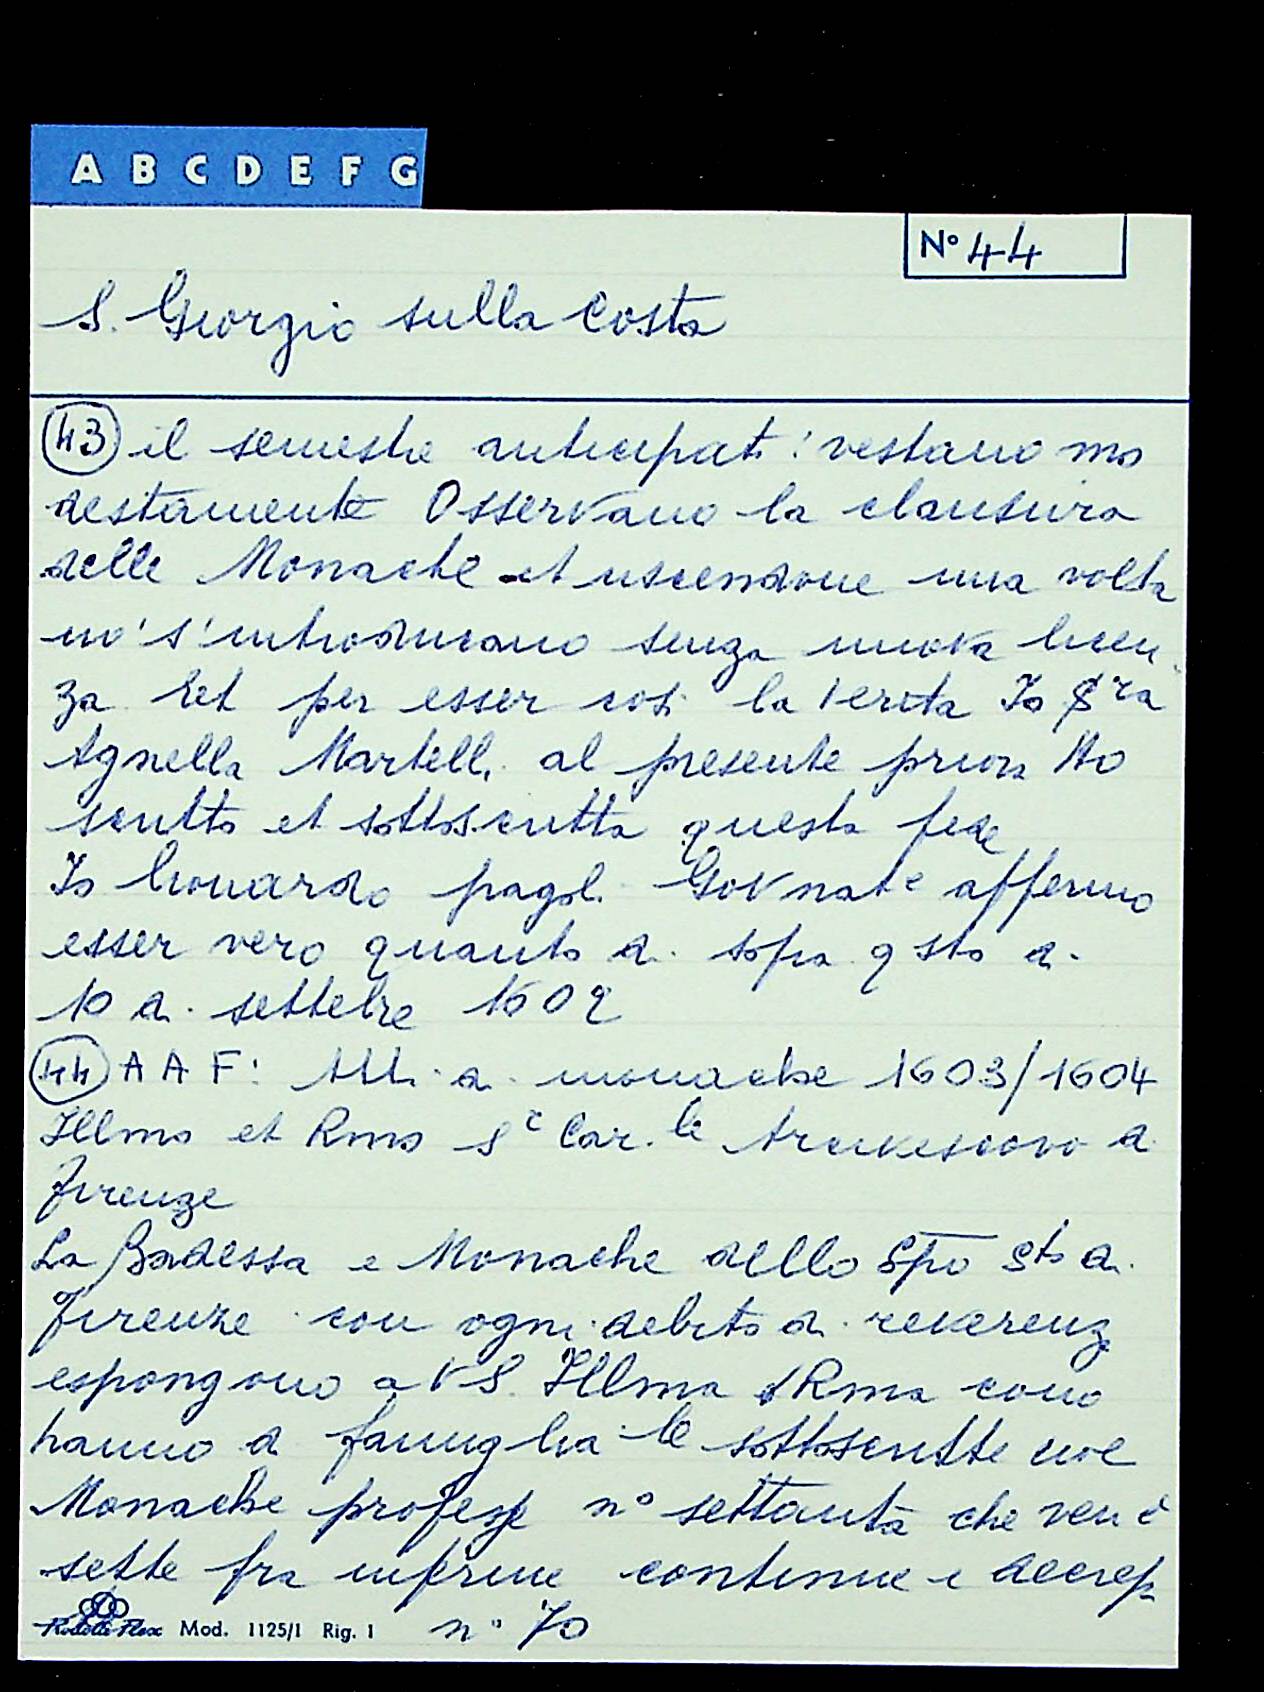 A B C D E F G
Nº 44
S. Giorgio sulla Costa
43 il semestre anticipati: vestano mo
destamente Osservano la clausura
delle Monache et uscendone una volta
no' s'introducano senza nuova licen
za Et per esser cosi la verita Io Sra
Agnella Martelli al presente priora Ho
scritto et sottoscritta questa fede
Io Lionardo pagoli Govnate affermo
esser vero quanto di sopra qsto di
10 di settebre 1602
44 AAF: Atti di monache 1603/1604
Illmo et Rmo Sr Car.le Arcivescovo di
firenze
La Badessa e Monache dello Spo Sto di
firenze con ogni debito di reverenz
espongono a VS. Illma Rma como
hanno di famiglia le sottoscritte cioe
Monache professe nº settanta che ven è
sette fra inferme continue e decrep
nº 70
Mod. 1125/1 Rig. 1